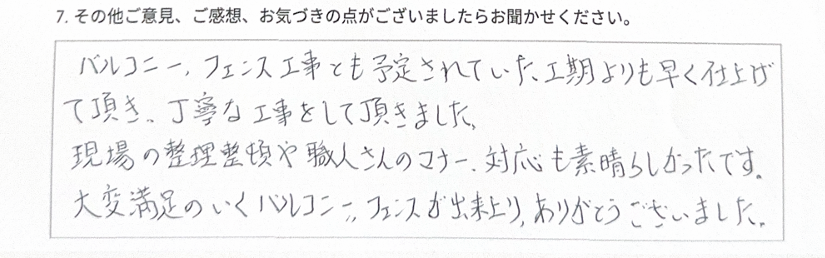 7. その他ご意見、ご感想、お気づきの点がございましたらお聞かせください。
バルコニー、フェンス工事とも予定されていた工期よりも早く仕上げ
て頂き、丁寧な工事をして頂きました。
現場の整理整頓や職人さんのマナー、対応も素晴らしかったです。
大変満足のいくバルコニー、フェンスが出来上り、ありがとうございました。